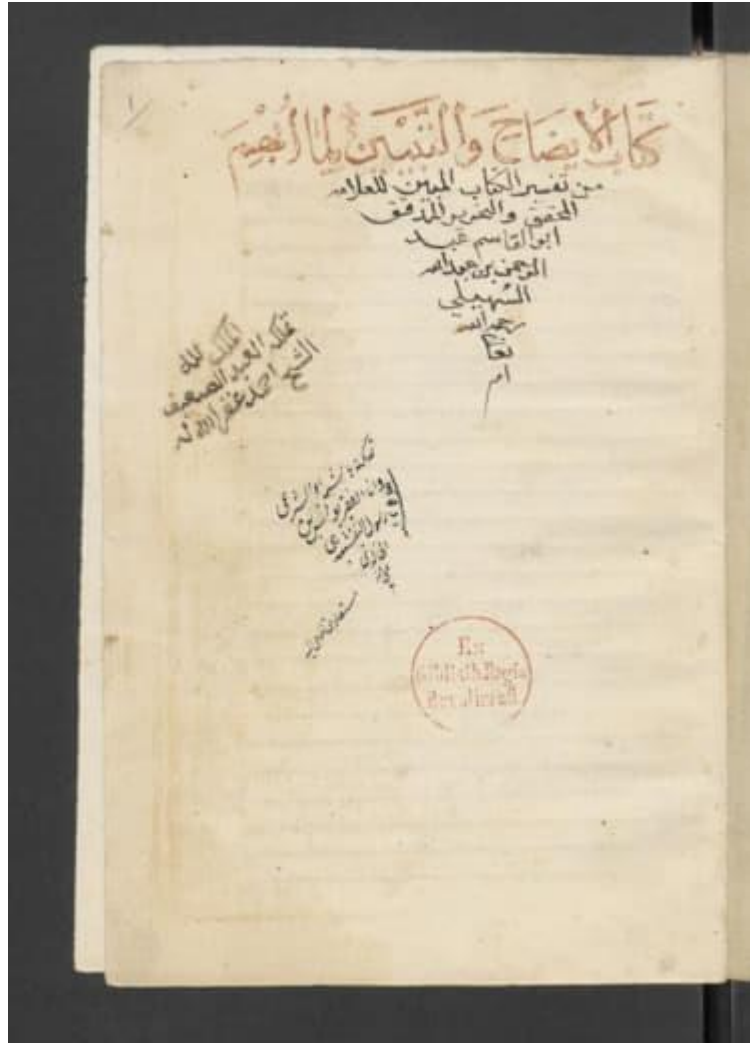 ١
كتاب الأيضاح والتبيين لما أبهم
من تفسير الكتاب المبين للعلامه
المحقق والنحرير المدقق
ابو القاسم عبد
الرحمن بن عبد الله
السهيلي
رحمه الله
تعا
ام
الملك لله
تملكه العبد الضعيف
الشيخ احمد غفر الله له
Ex
Biblioth. Regia
Berolinensi